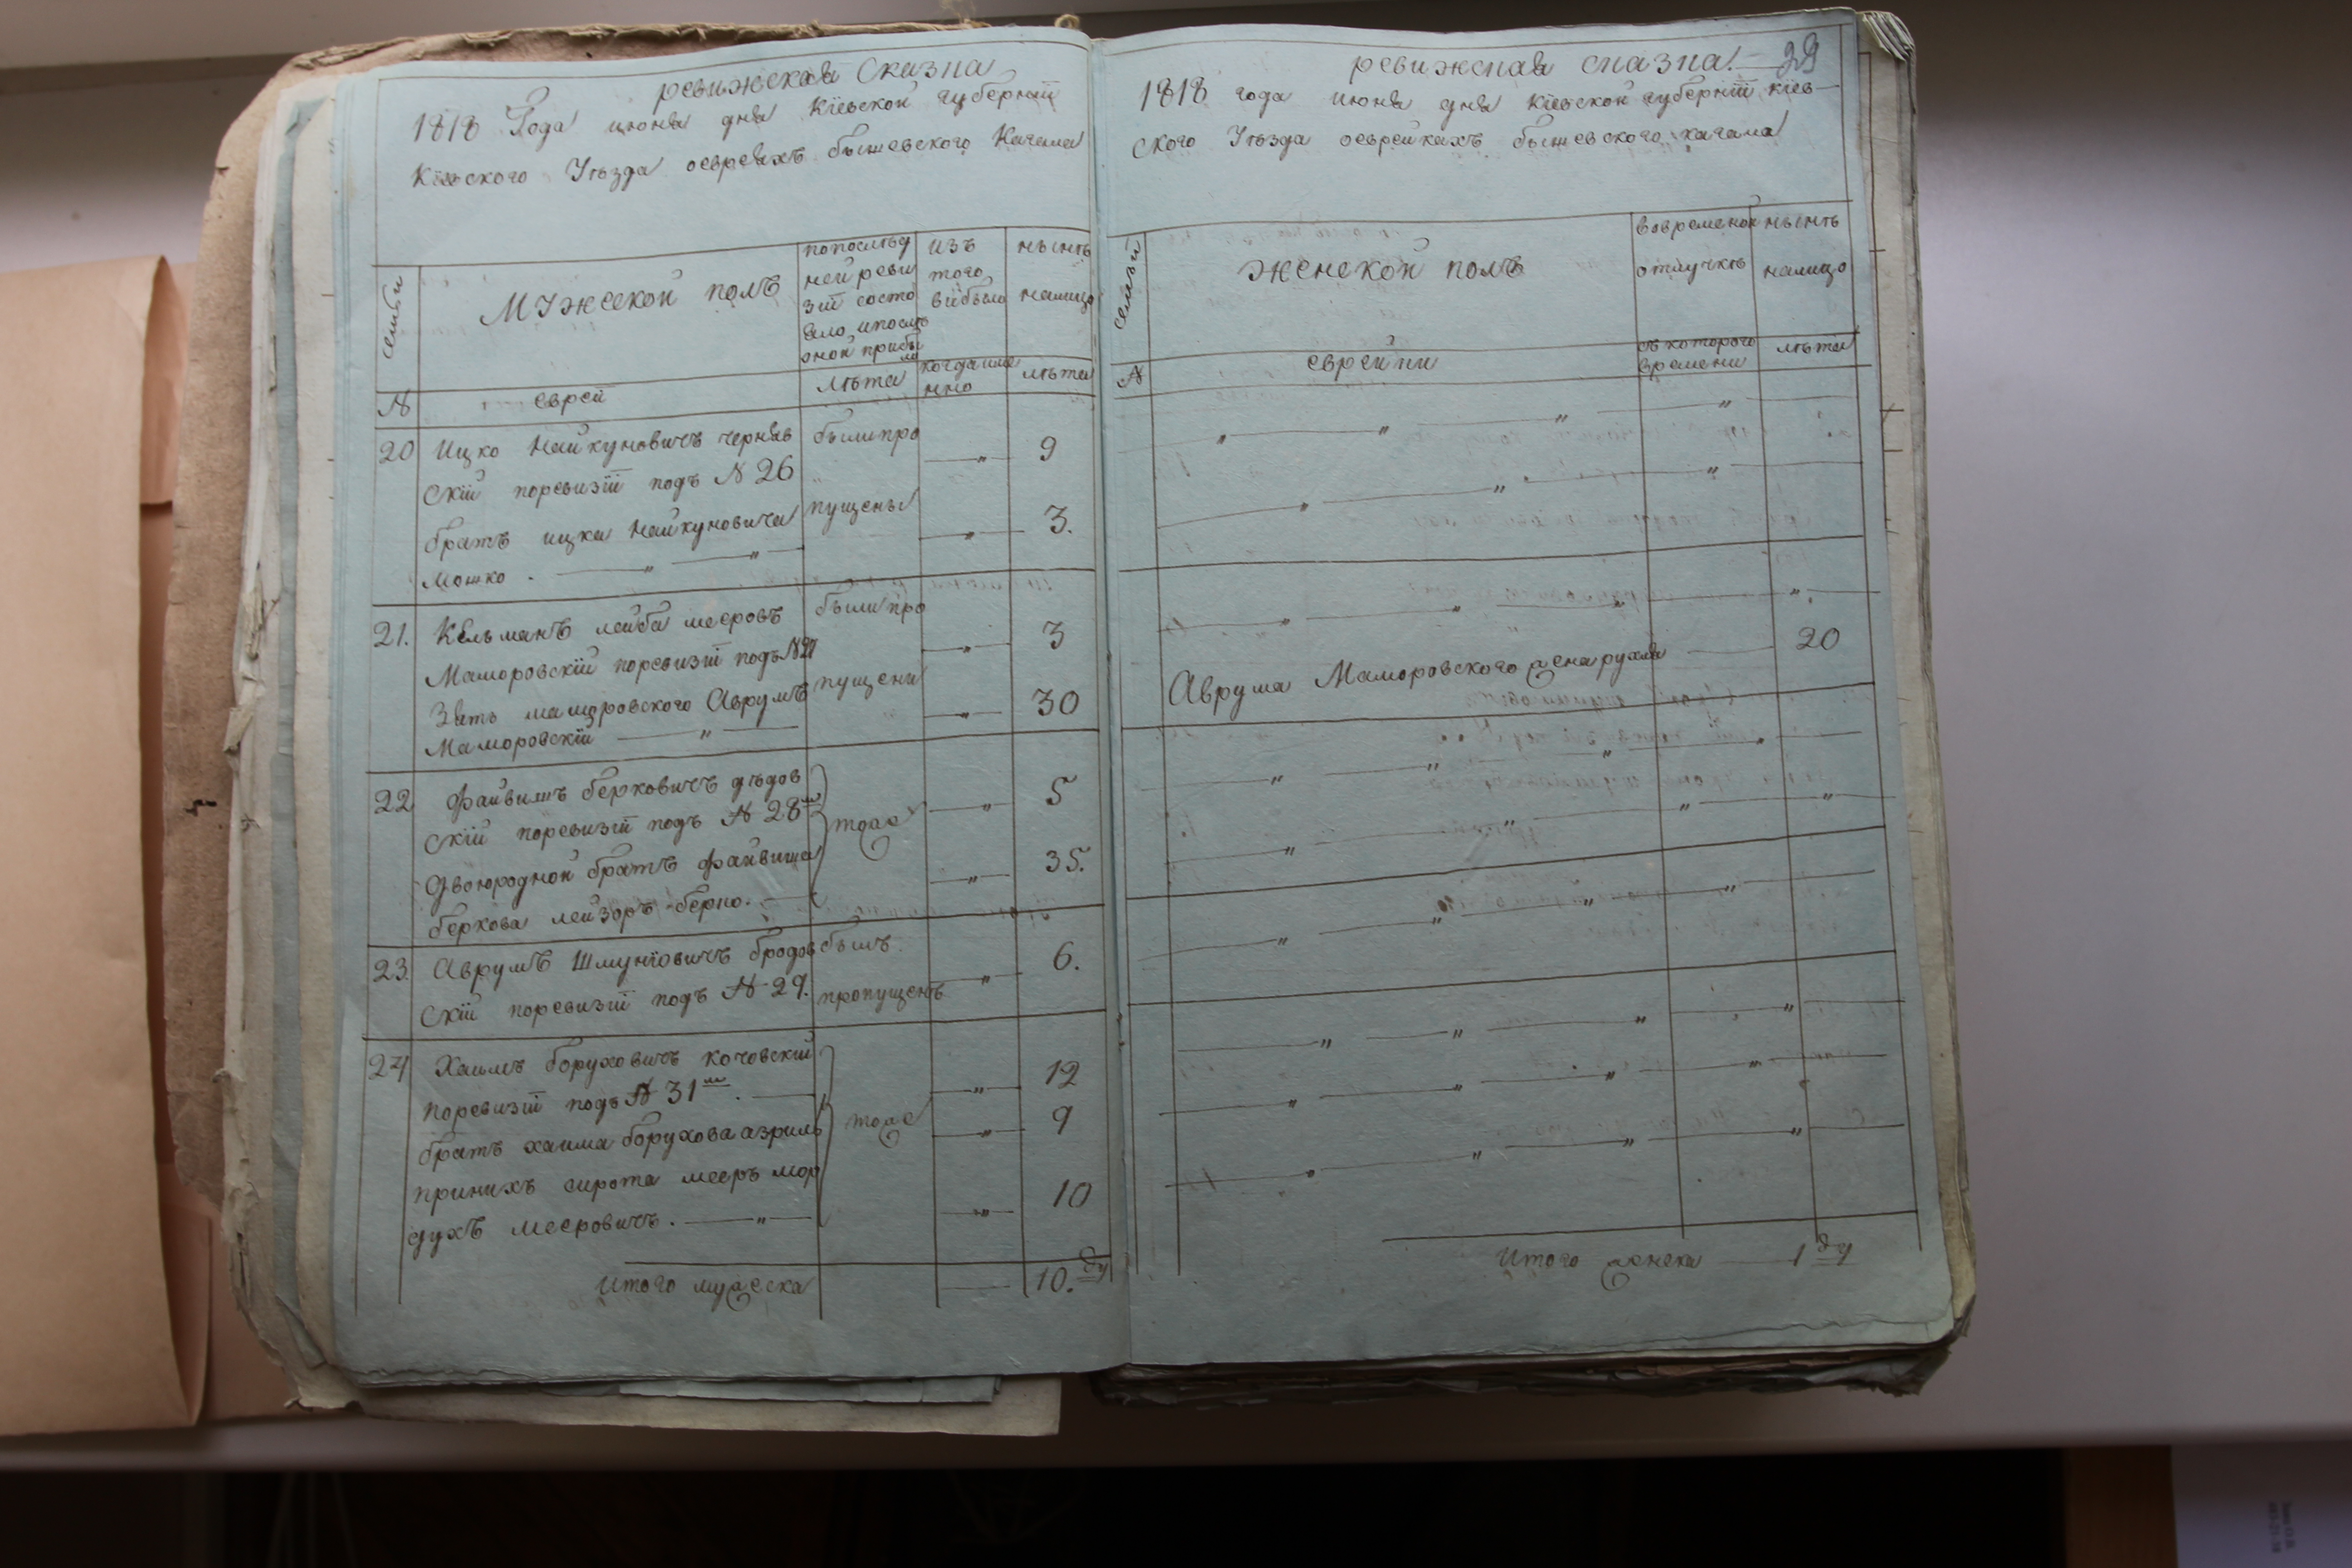 ревижская Сказка
1818 Года июня дня Кіевской губерніи
Кіевского Уѣзда оевреяхъ бышевского Кагала
семьи
Мужеской полъ
попослѣд
ней реви
зіи состо
яло, ипослѣ
оной прибы
ло
изъ
того
выбыло
нынѣ
налицо
№
еврей
лѣта
когда име
нно
лѣта
20 Ицко Найхуновичъ черняв
былипро
9
скій поревизіи подъ № 26
братъ ицка Найхуновича
пущены
3.
Мошко
21. Кельманъ лейба мееровъ
былипро
3
Маморовскій поревизіи подъ №27
Зять маморовского Аврумъ
пущени
30
Маморовскій
22 Файвишъ берковичъ дѣдов
5
скій поревизіи подъ № 28м
тоже
двоюродной братъ файвиша
35.
беркова лейзоръ берко.
23. Аврумъ Шмунiовичъ бродов
былъ
6.
скій поревизіи подъ № 29.
пропущенъ
24 Хаимъ боруховичъ кочовскій
12
поревизіи подъ № 31м.
тоже
братъ хаима борухова азриль
9
принихъ сирота мееръ мор
10
духъ мееровичъ.
Итого мужеска
10. ду
ревижская сказка. 29
1818 года июня дня кіевской губерніи кіев-
ского Уѣзда оеврейкахъ бышевского кагала
семьи
женской полъ
вовременой
отлучкѣ
нынѣ
налицо
№
еврейки
съ которого
времени
лѣта
Аврума Маморовского жена рухля 20
Итого женска 1 ду